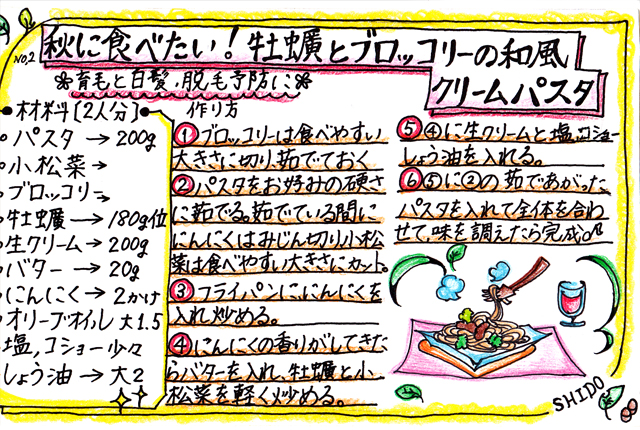 NO,2
秋に食べたい!牡蠣とブロッコリーの和風
クリームパスタ
育毛と白髪、脱毛予防に
材料[2人分]
パスタ→200g
小松菜→
ブロッコリー→
牡蠣→180g位
生クリーム→200g
バター→20g
にんにく→2かけ
オリーブオイル大1.5
塩,コショー少々
しょう油→大2
作り方
①ブロッコリーは食べやすい
大きさに切り茹でておく
②パスタをお好みの硬さ
に茹でる。茹でている間に
にんにくはみじん切り,小松
菜は食べやすい大きさにカット。
③フライパンに、にんにくを
入れ炒める。
④にんにくの香りがしてきた
らバターを入れ、牡蠣と小
松菜を軽く炒める。
⑤④に生クリームと塩,コショー
しょう油を入れる。
⑥⑤に②の茹であがった
パスタを入れて全体を合わ
せて、味を調えたら完成。
SHIDO